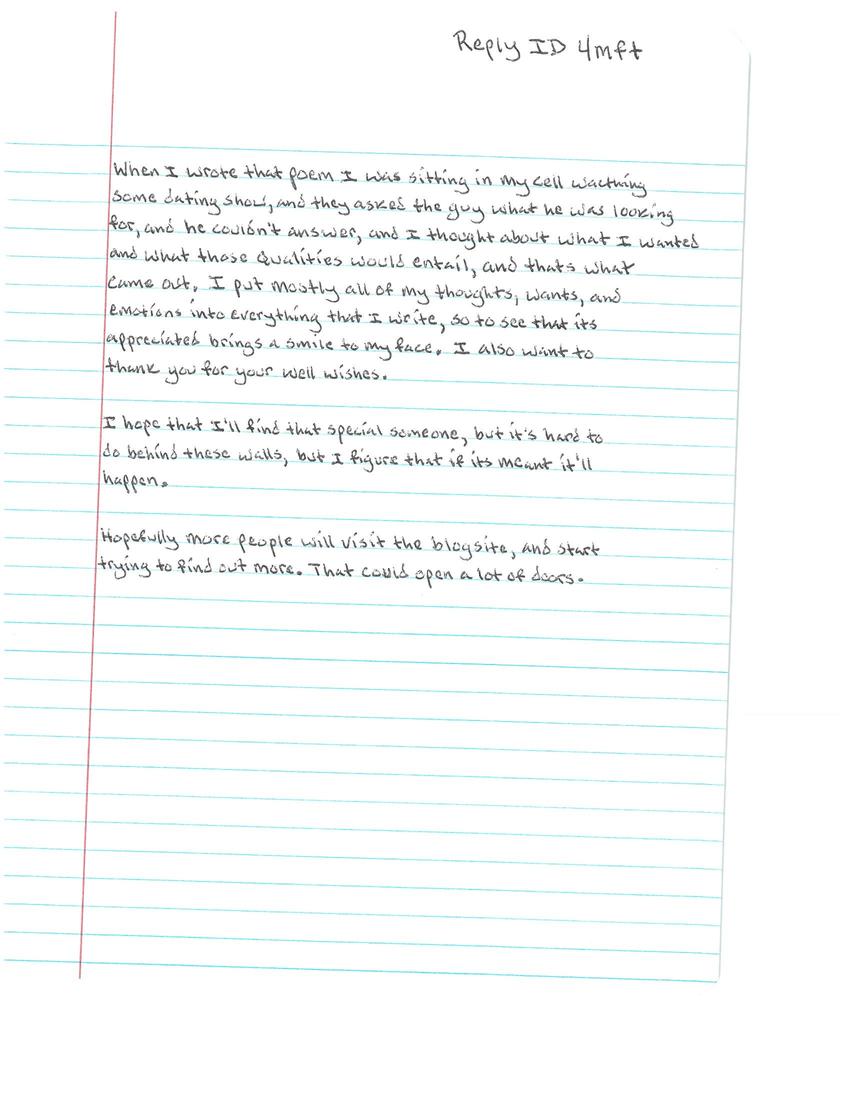 Reply ID 4mft
When I wrote that poem I was sitting in my cell wacthing
some dating show, and they asked the guy what he was looking
for, and he couldn't answer, and I thought about what I wanted
and what those qualities would entail, and thats what
came out. I put mostly all of my thoughts, wants, and
emotions into everything that I write, so to see that its
appreciated brings a smile to my face. I also want to
thank you for your well wishes.
I hope that I'll find that special someone, but it's hard to
do behind these walls, but I figure that if its meant it'll
happen.
Hopefully more people will visit the blogsite, and start
trying to find out more. That could open a lot of doors.